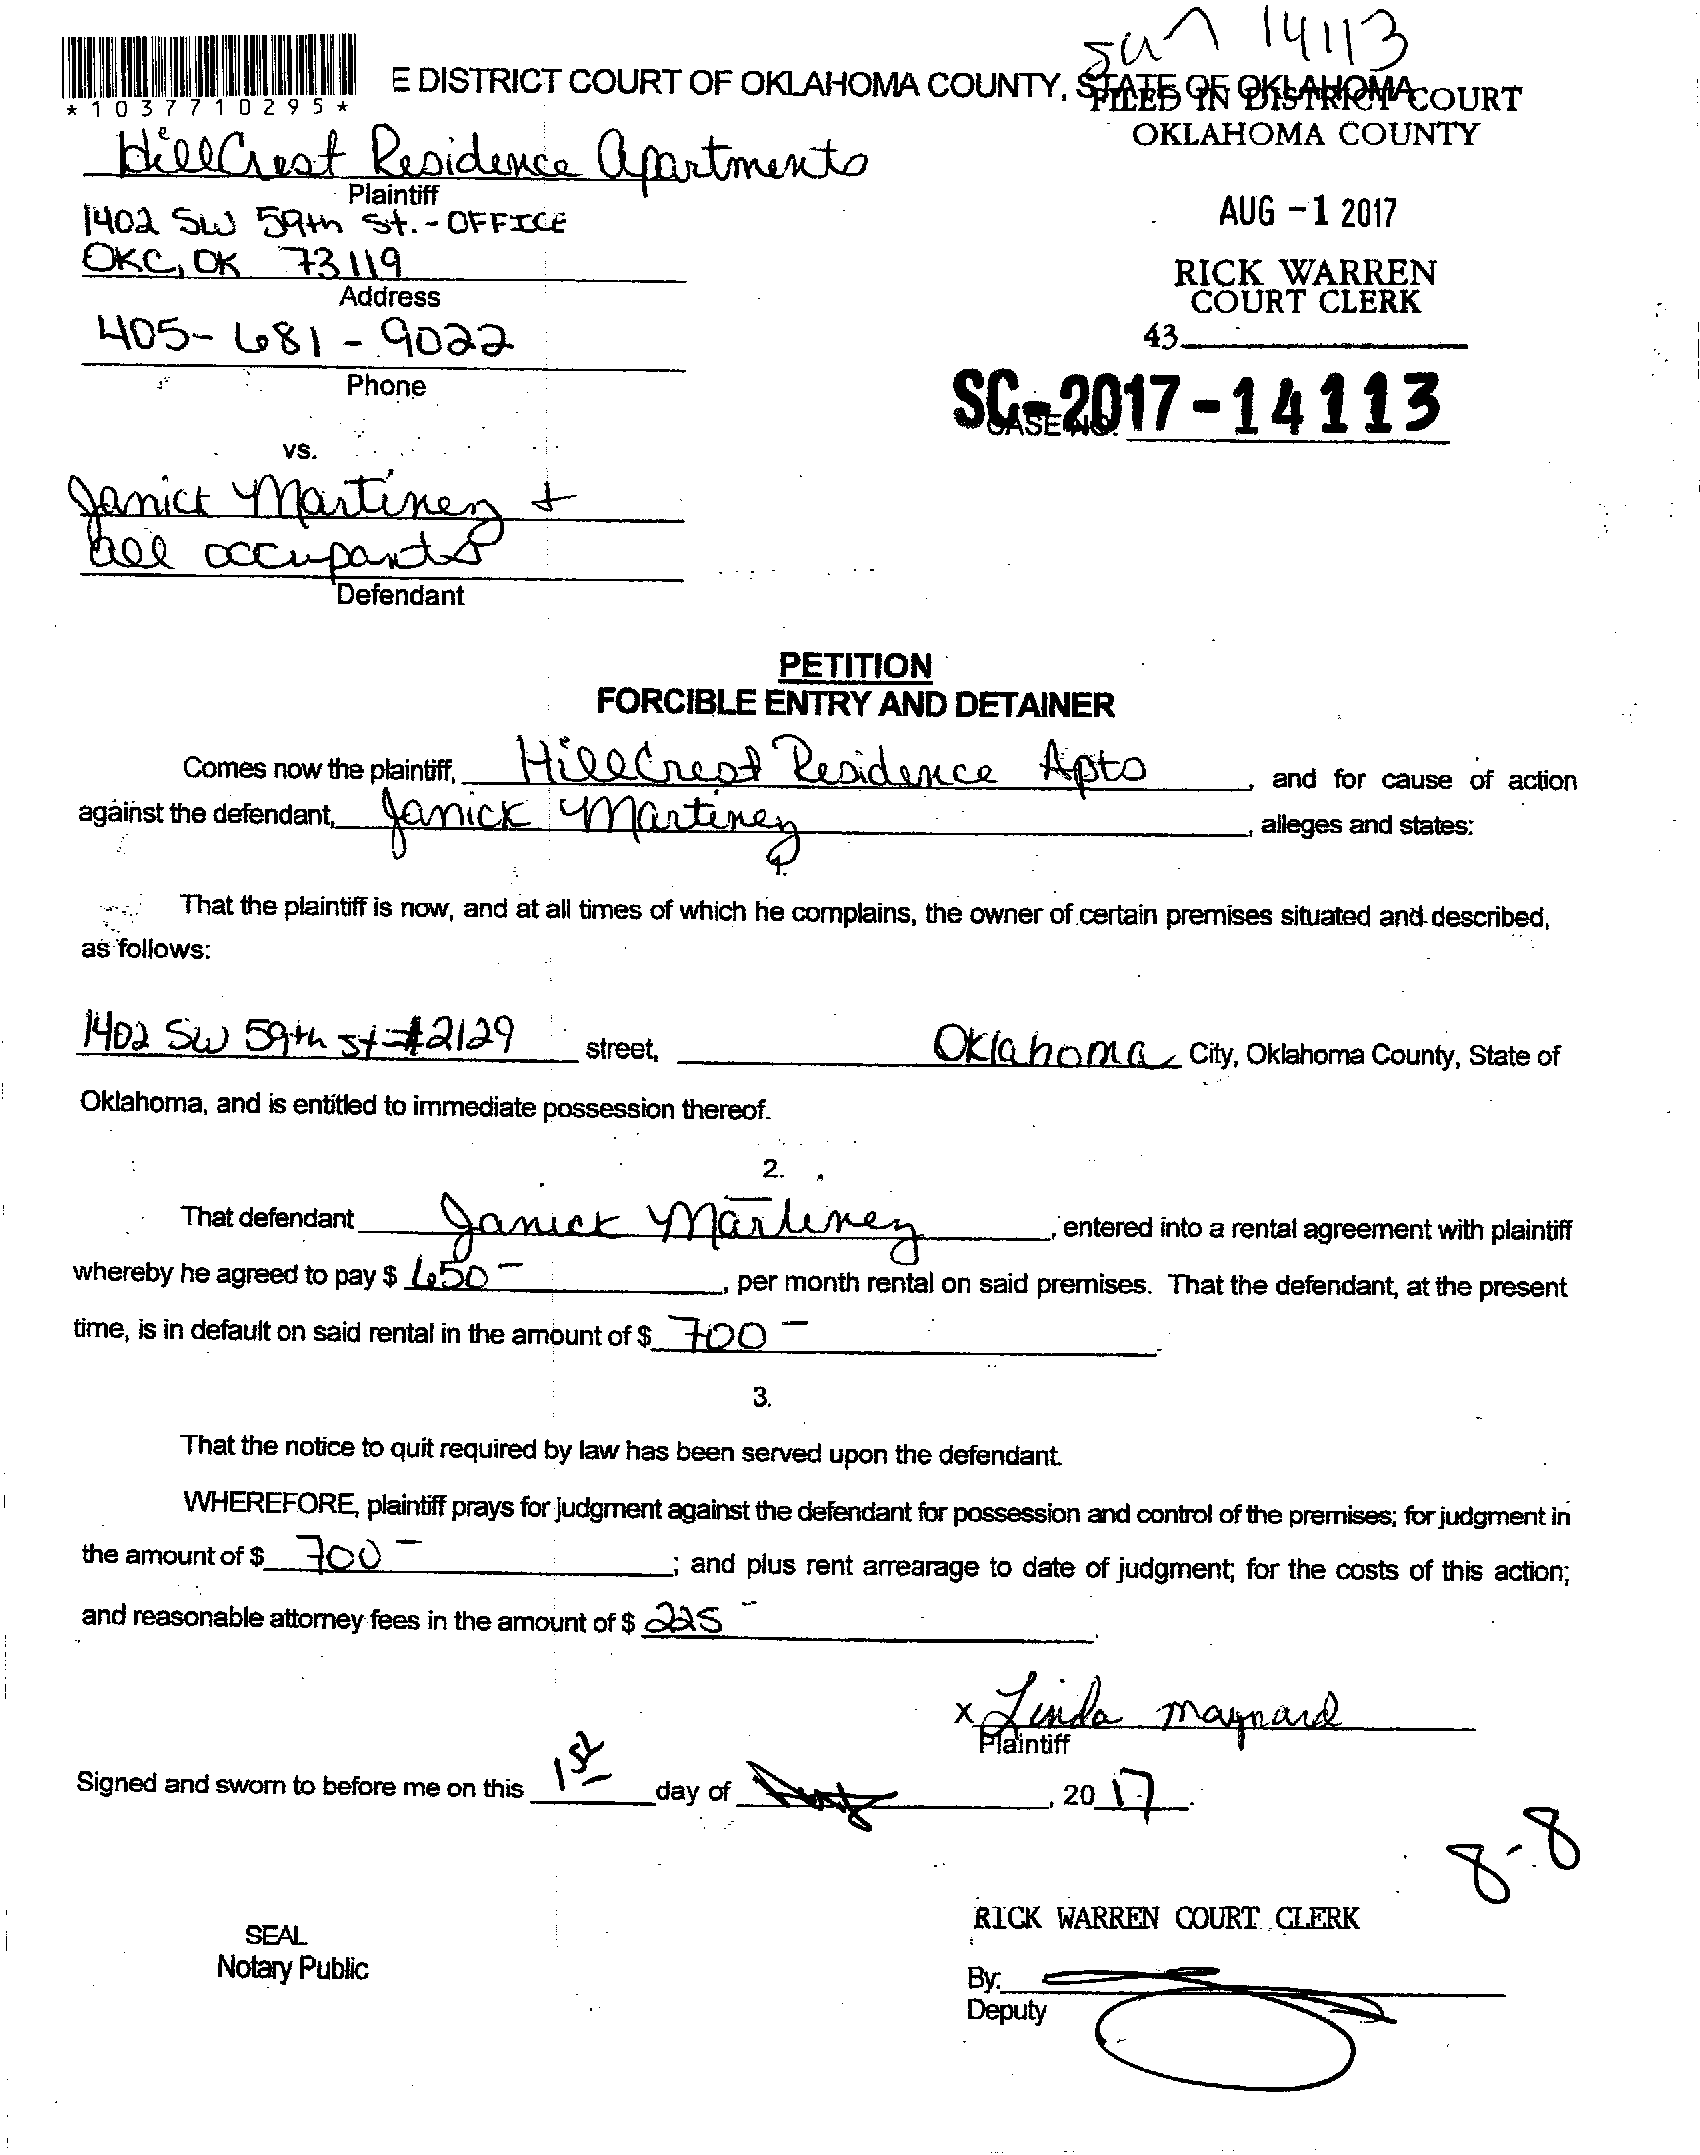 14113
E DISTRICT COURT OF OKLAHOMA COUNTY, STATE OF OKLAHOMA
*1037710295*
FILED IN DISTRICT COURT
OKLAHOMA COUNTY
HillCrest Residence Apartments
Plaintiff
1402 SW 59th St. - OFFICE
AUG -1 2017
OKC, OK 73119
Address
RICK WARREN
COURT CLERK
405-681-9022
43
Phone
SC-2017-14113
CASE NO.
vs.
Janick Martinez +
all occupants
Defendant
PETITION
FORCIBLE ENTRY AND DETAINER
Comes now the plaintiff, HillCrest Residence Apts, and for cause of action
against the defendant, Janick Martinez, alleges and states:
1.
That the plaintiff is now, and at all times of which he complains, the owner of certain premises situated and described,
as follows:
1402 SW 59th st #2129 street, Oklahoma City, Oklahoma County, State of
Oklahoma, and is entitled to immediate possession thereof.
2.
That defendant Janick Martinez, entered into a rental agreement with plaintiff
whereby he agreed to pay $ 650-, per month rental on said premises. That the defendant, at the present
time, is in default on said rental in the amount of $ 700-.
3.
That the notice to quit required by law has been served upon the defendant.
WHEREFORE, plaintiff prays for judgment against the defendant for possession and control of the premises; for judgment in
the amount of $ 700-; and plus rent arrearage to date of judgment; for the costs of this action;
and reasonable attorney fees in the amount of $ 225-.
x Linda Maynard
Plaintiff
Signed and sworn to before me on this 1st day of , 2017.
8-8
RICK WARREN COURT CLERK
SEAL
Notary Public
By:
Deputy